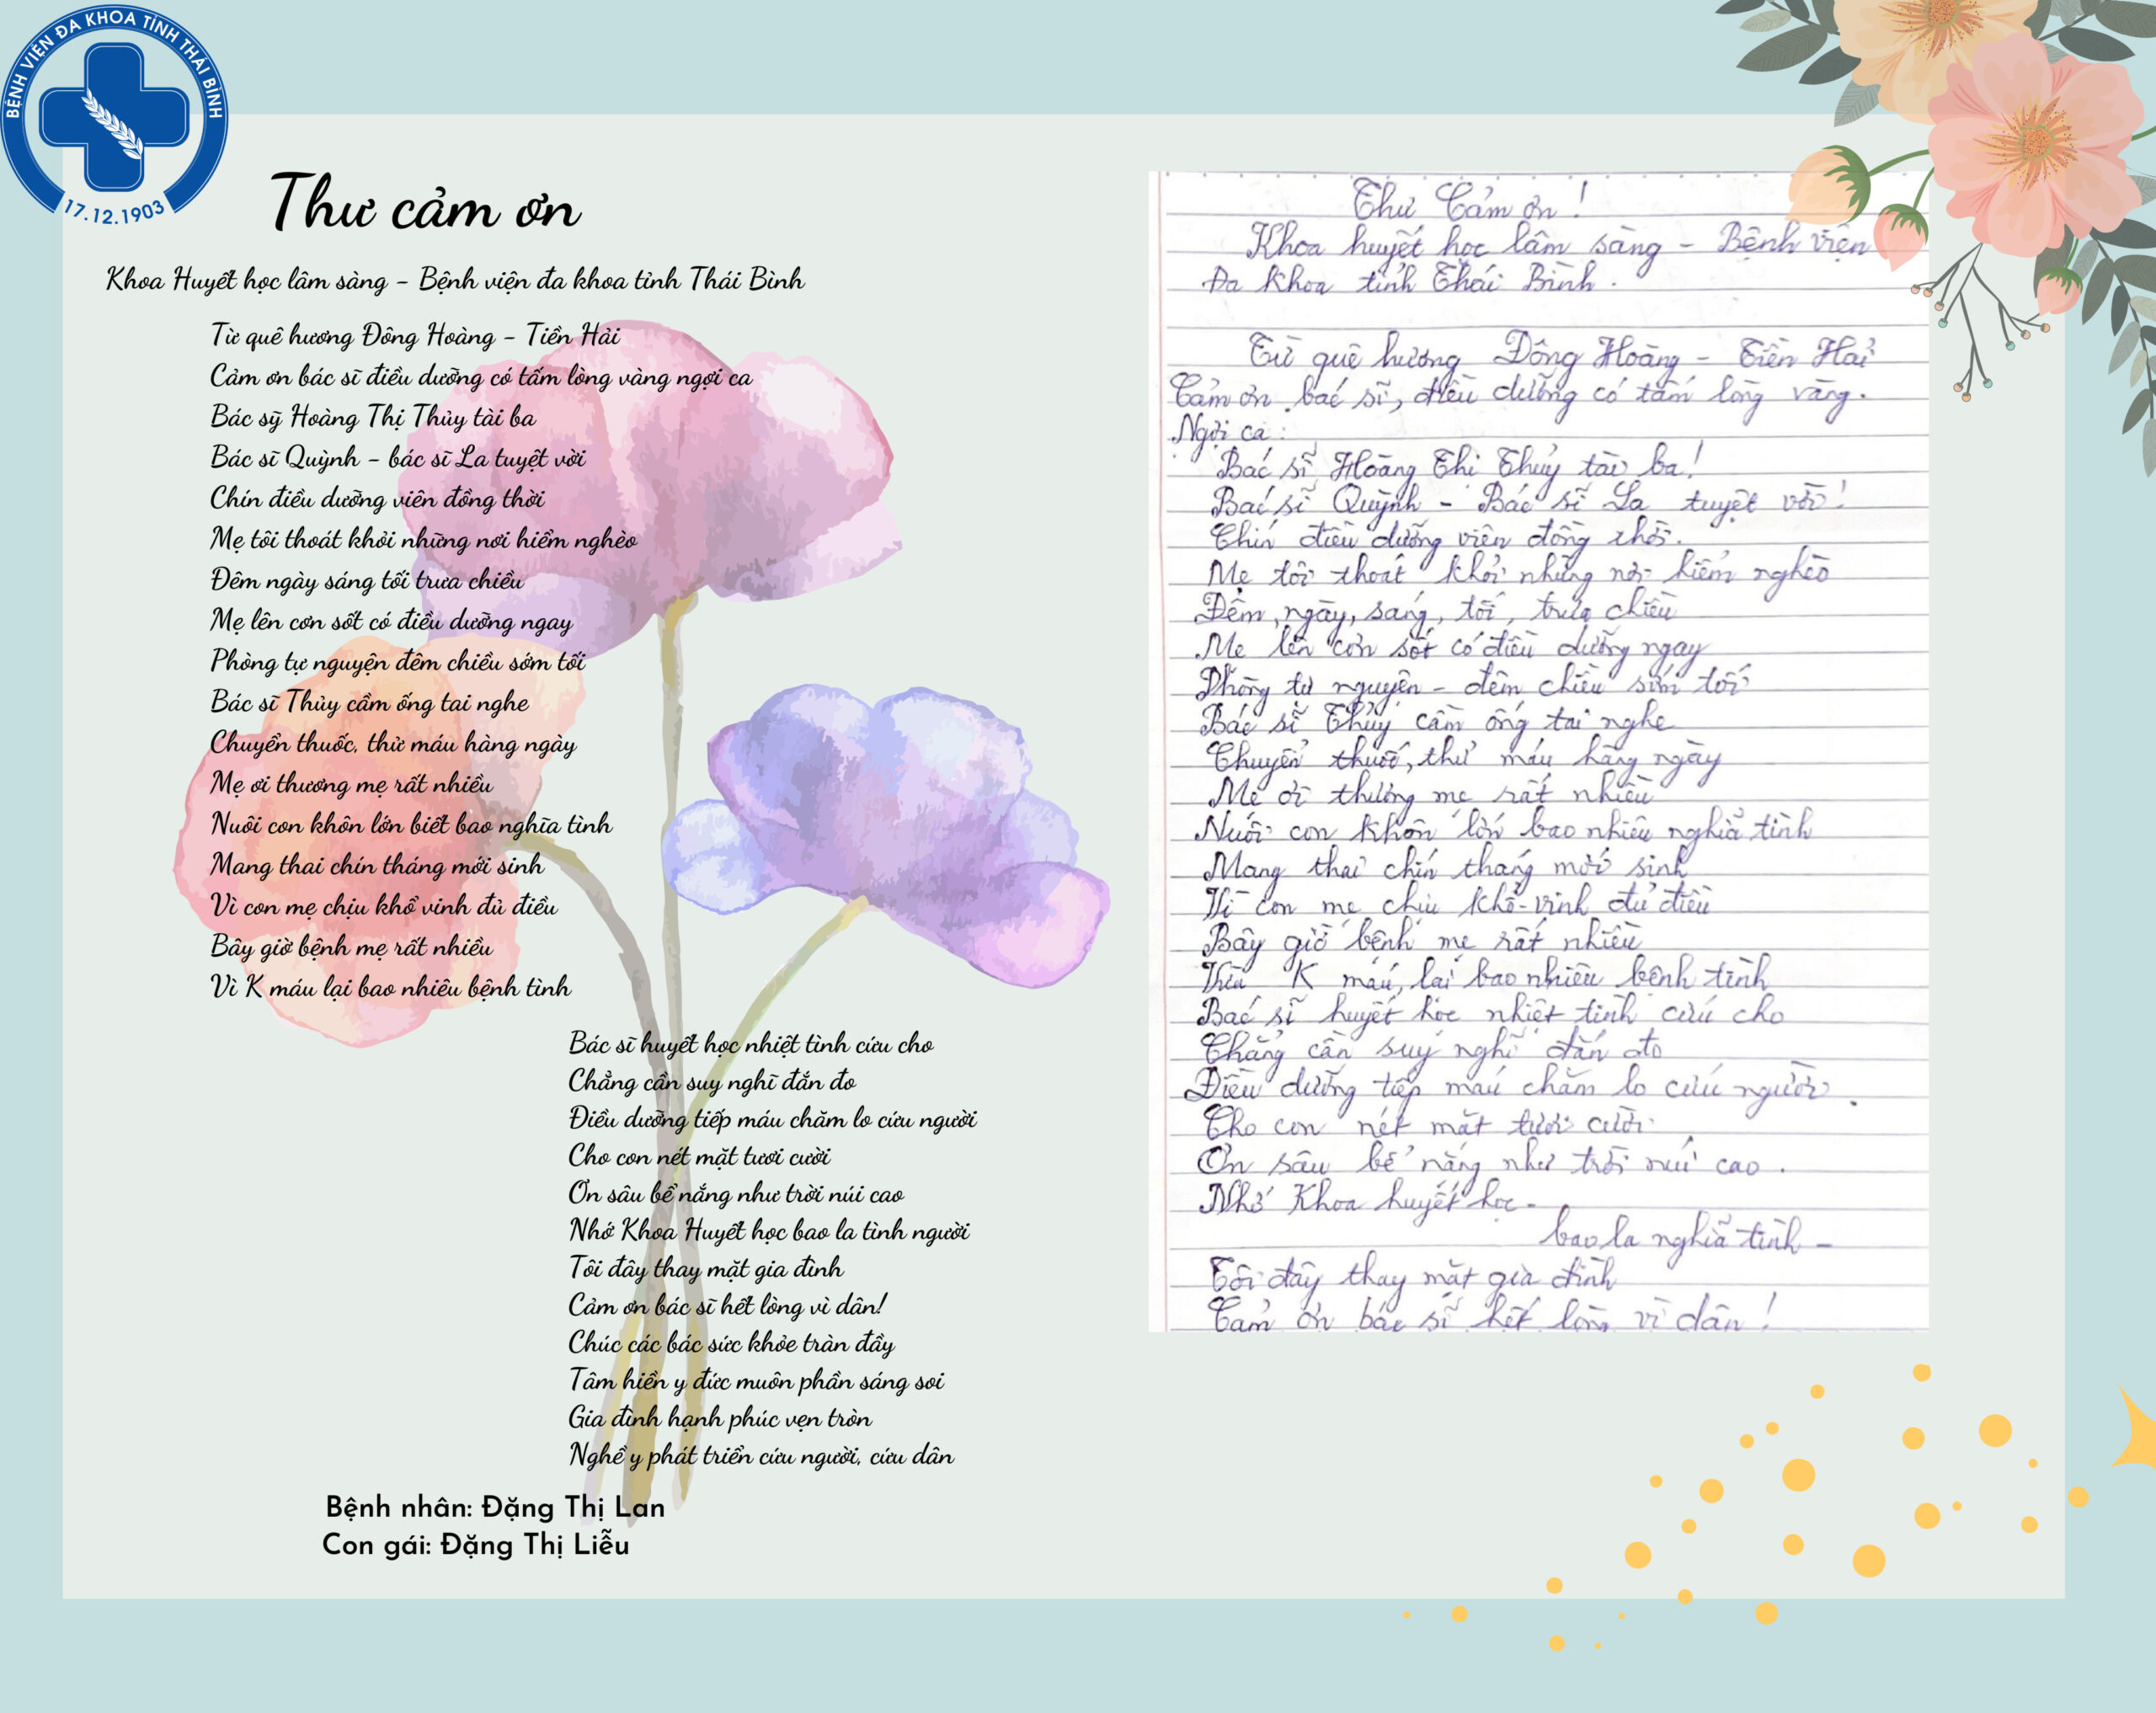 BỆNH VIỆN ĐA KHOA TỈNH THÁI BÌNH
17.12.1903
Thư cảm ơn
Khoa Huyết học lâm sàng - Bệnh viện đa khoa tỉnh Thái Bình
Từ quê hương Đông Hoàng - Tiền Hải
Cảm ơn bác sĩ điều dưỡng có tấm lòng vàng ngợi ca
Bác sỹ Hoàng Thị Thủy tài ba
Bác sĩ Quỳnh - bác sĩ La tuyệt vời
Chín điều dưỡng viên đồng thời
Mẹ tôi thoát khỏi những nơi hiểm nghèo
Đêm ngày sáng tối trưa chiều
Mẹ lên cơn sốt có điều dưỡng ngay
Phòng tự nguyện đêm chiều sớm tối
Bác sĩ Thủy cầm ống tai nghe
Chuyển thuốc, thử máu hàng ngày
Mẹ ơi thương mẹ rất nhiều
Nuôi con khôn lớn biết bao nghĩa tình
Mang thai chín tháng mới sinh
Vì con mẹ chịu khổ vinh đủ điều
Bây giờ bệnh mẹ rất nhiều
Vì K máu lại bao nhiêu bệnh tình
Bác sĩ huyết học nhiệt tình cứu cho
Chẳng cần suy nghĩ đắn đo
Điều dưỡng tiếp máu chăm lo cứu người
Cho con nét mặt tươi cười
Ơn sâu bể nắng như trời núi cao
Nhớ Khoa Huyết học bao la tình người
Tôi đây thay mặt gia đình
Cảm ơn bác sĩ hết lòng vì dân!
Chúc các bác sức khỏe tràn đầy
Tâm hiền y đức muôn phần sáng soi
Gia đình hạnh phúc vẹn tròn
Nghề y phát triển cứu người, cứu dân
Bệnh nhân: Đặng Thị Lan
Con gái: Đặng Thị Liễu
Thư Cảm ơn!
Khoa huyết học lâm sàng - Bệnh viện
Đa khoa tỉnh Thái Bình.
Từ quê hương Đông Hoàng - Tiền Hải
Cảm ơn bác sĩ, điều dưỡng có tấm lòng vàng.
Ngợi ca:
Bác sĩ Hoàng Thị Thuỷ tài ba!
Bác sĩ Quỳnh - Bác sĩ La tuyệt vời!
Chín điều dưỡng viên đồng thời.
Mẹ tôi thoát khỏi những nơi hiểm nghèo
Đêm, ngày, sáng, tối, trưa chiều
Mẹ lên cơn sốt có điều dưỡng ngay
Phòng tự nguyện - đêm chiều sớm tối
Bác sĩ Thủy cầm ống tai nghe
Chuyển thuốc, thử máu hàng ngày
Mẹ ơi thương mẹ rất nhiều
Nuôi con khôn lớn bao nhiêu nghĩa tình
Mang thai chín tháng mới sinh
Vì con mẹ chịu khổ-vinh đủ điều
Bây giờ bệnh mẹ rất nhiều
K máu, lại bao nhiêu bệnh tình
Bác sĩ huyết học nhiệt tình cứu cho
Chẳng cần suy nghĩ đắn đo
Điều dưỡng tiếp máu chăm lo cứu người.
Cho con nét mặt tươi cười
Ơn sâu bể nặng như trời núi cao.
Nhớ Khoa huyết học -
bao la nghĩa tình -
Tôi đây thay mặt gia đình
Cảm ơn bác sĩ hết lòng vì dân!